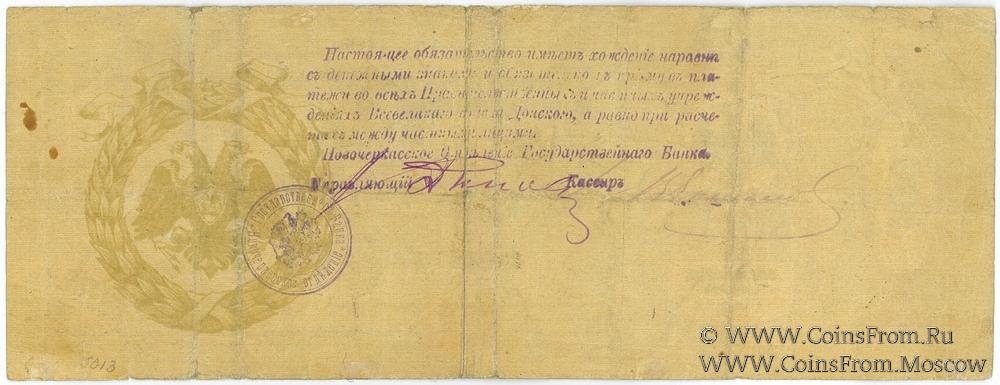 Настоящее обязательство имѣетъ хожденіе наравнѣ
съ денежными знаками и обязательно къ пріему въ пла-
тежи во всѣхъ Правительственныхъ и частныхъ учреж-
деніяхъ Всевеликаго войска Донского, а равно при расче-
тахъ между частными лицами.
Новочеркасское Отдѣленіе Государственнаго Банка.
Управляющій Кассиръ
5013
© WWW.CoinsFrom.Ru
WWW.CoinsFrom.Moscow